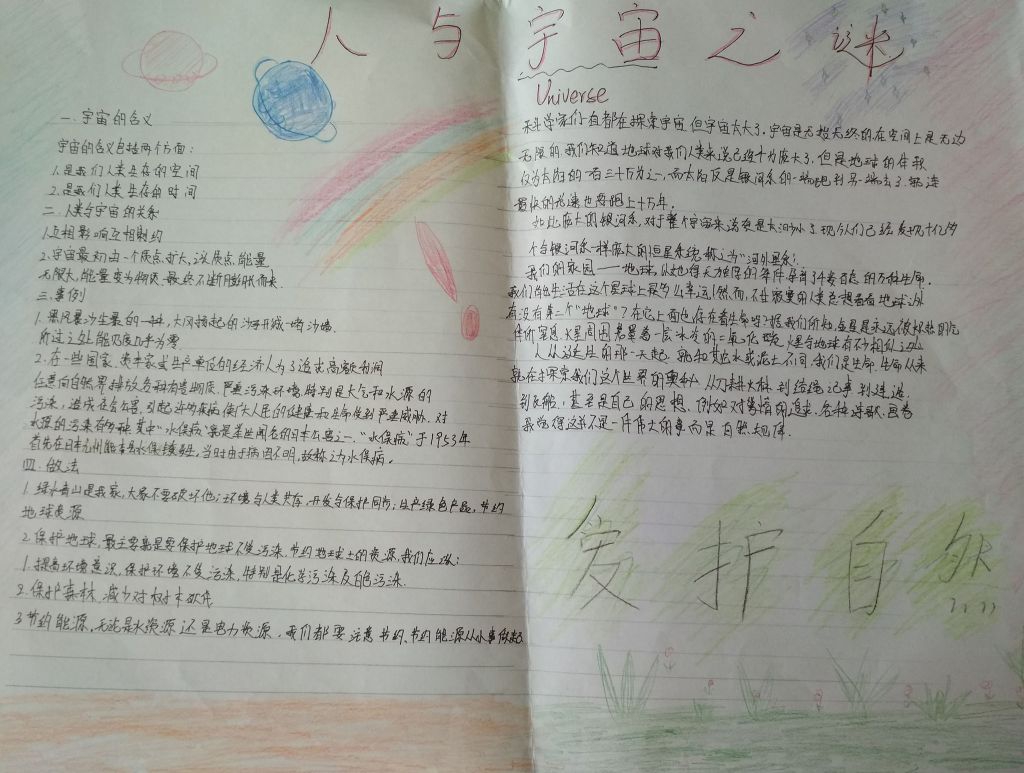 人与宇宙之谜
Universe
一.宇宙的含义
宇宙的含义包括两个方面:
1.是我们人类生存的空间
2.是我们人类生存的时间
二.人类与宇宙的关系
1.互相影响互相制约
2.宇宙最初由一个质点变大,该质点能量
无限大,能量变为物质,最终不断膨胀而来
三.事例
1.黑风暴沙尘暴的一种,大风扬起的沙子形成一堵沙墙.
所过之处能见度几乎为零
2.在一些国家,资本家或生产单位的经济人为了追求高额利润
任意向自然界排放各种有毒物质,严重污染环境,特别是大气和水源的
污染,造成社会公害,引起许多疾病,使广大人民的健康和生命受到严重威胁.对
水源的污染有多种其中"水俣病"就是著世闻名的日本公害之一."水俣病"于1953年
首先在日本九州熊本县水俣镇发生,当时由于病因不明,故称之为水俣病。
四.做法
1.绿水青山是我家,大家不要破坏他;环境与人类共存,开发与保护同步;生产绿色产品,节约
地球资源
2.保护地球,最主要就是要保护地球不受污染.节约地球上的资源,我们应该:
1.提高环境意识,保护环境不受污染,特别是化学污染及白色污染.
2.保护森林,减少对树木砍伐
3.节约能源,无论是水资源还是电力资源,我们都要注意节约,节约能源从小事做起
科学家们一直都在探索宇宙,但宇宙太大了.宇宙是无始无终的在空间上是无边
无限的.我们知道地球对我们人类来说已经十分庞大了,但是地球的体积
仅为太阳的一百三十万分之一,而太阳仅是银河系的一端跑到另一端去了.就连
最快的光速也要跑上十万年.
如此庞大的银河系,对于整个宇宙来说更是太渺小了现今人们已经发现十亿多
个与银河系一样庞大的恒星系统,称之为"河外星系".
我们的家园——地球,以她得天独厚的条件孕育了数百态的万种生命.
我们能生活在这个星球上是多么幸运!然而,不甘寂寞的人类总想看看地球外
有没有第二个"地球"?在它上面也存在着生命吗?据我们所知,金星是永远被炽热的气
体所笼罩,火星周围笼罩着一层冰冷的二氧化碳,火星与地球有不少相似之处
人从诞生的那一天起,就和其他水或泥土不同,我们是生命,生命从来
就在探索我们这个世界的奥秘,从刀耕火种,到结绳记事,到连说
到衣服,甚至是自己的思想.例如对爱情的追求,各种诗歌,画卷
我觉得这并不是一件伟大的事而是自然规律.
爱护自然